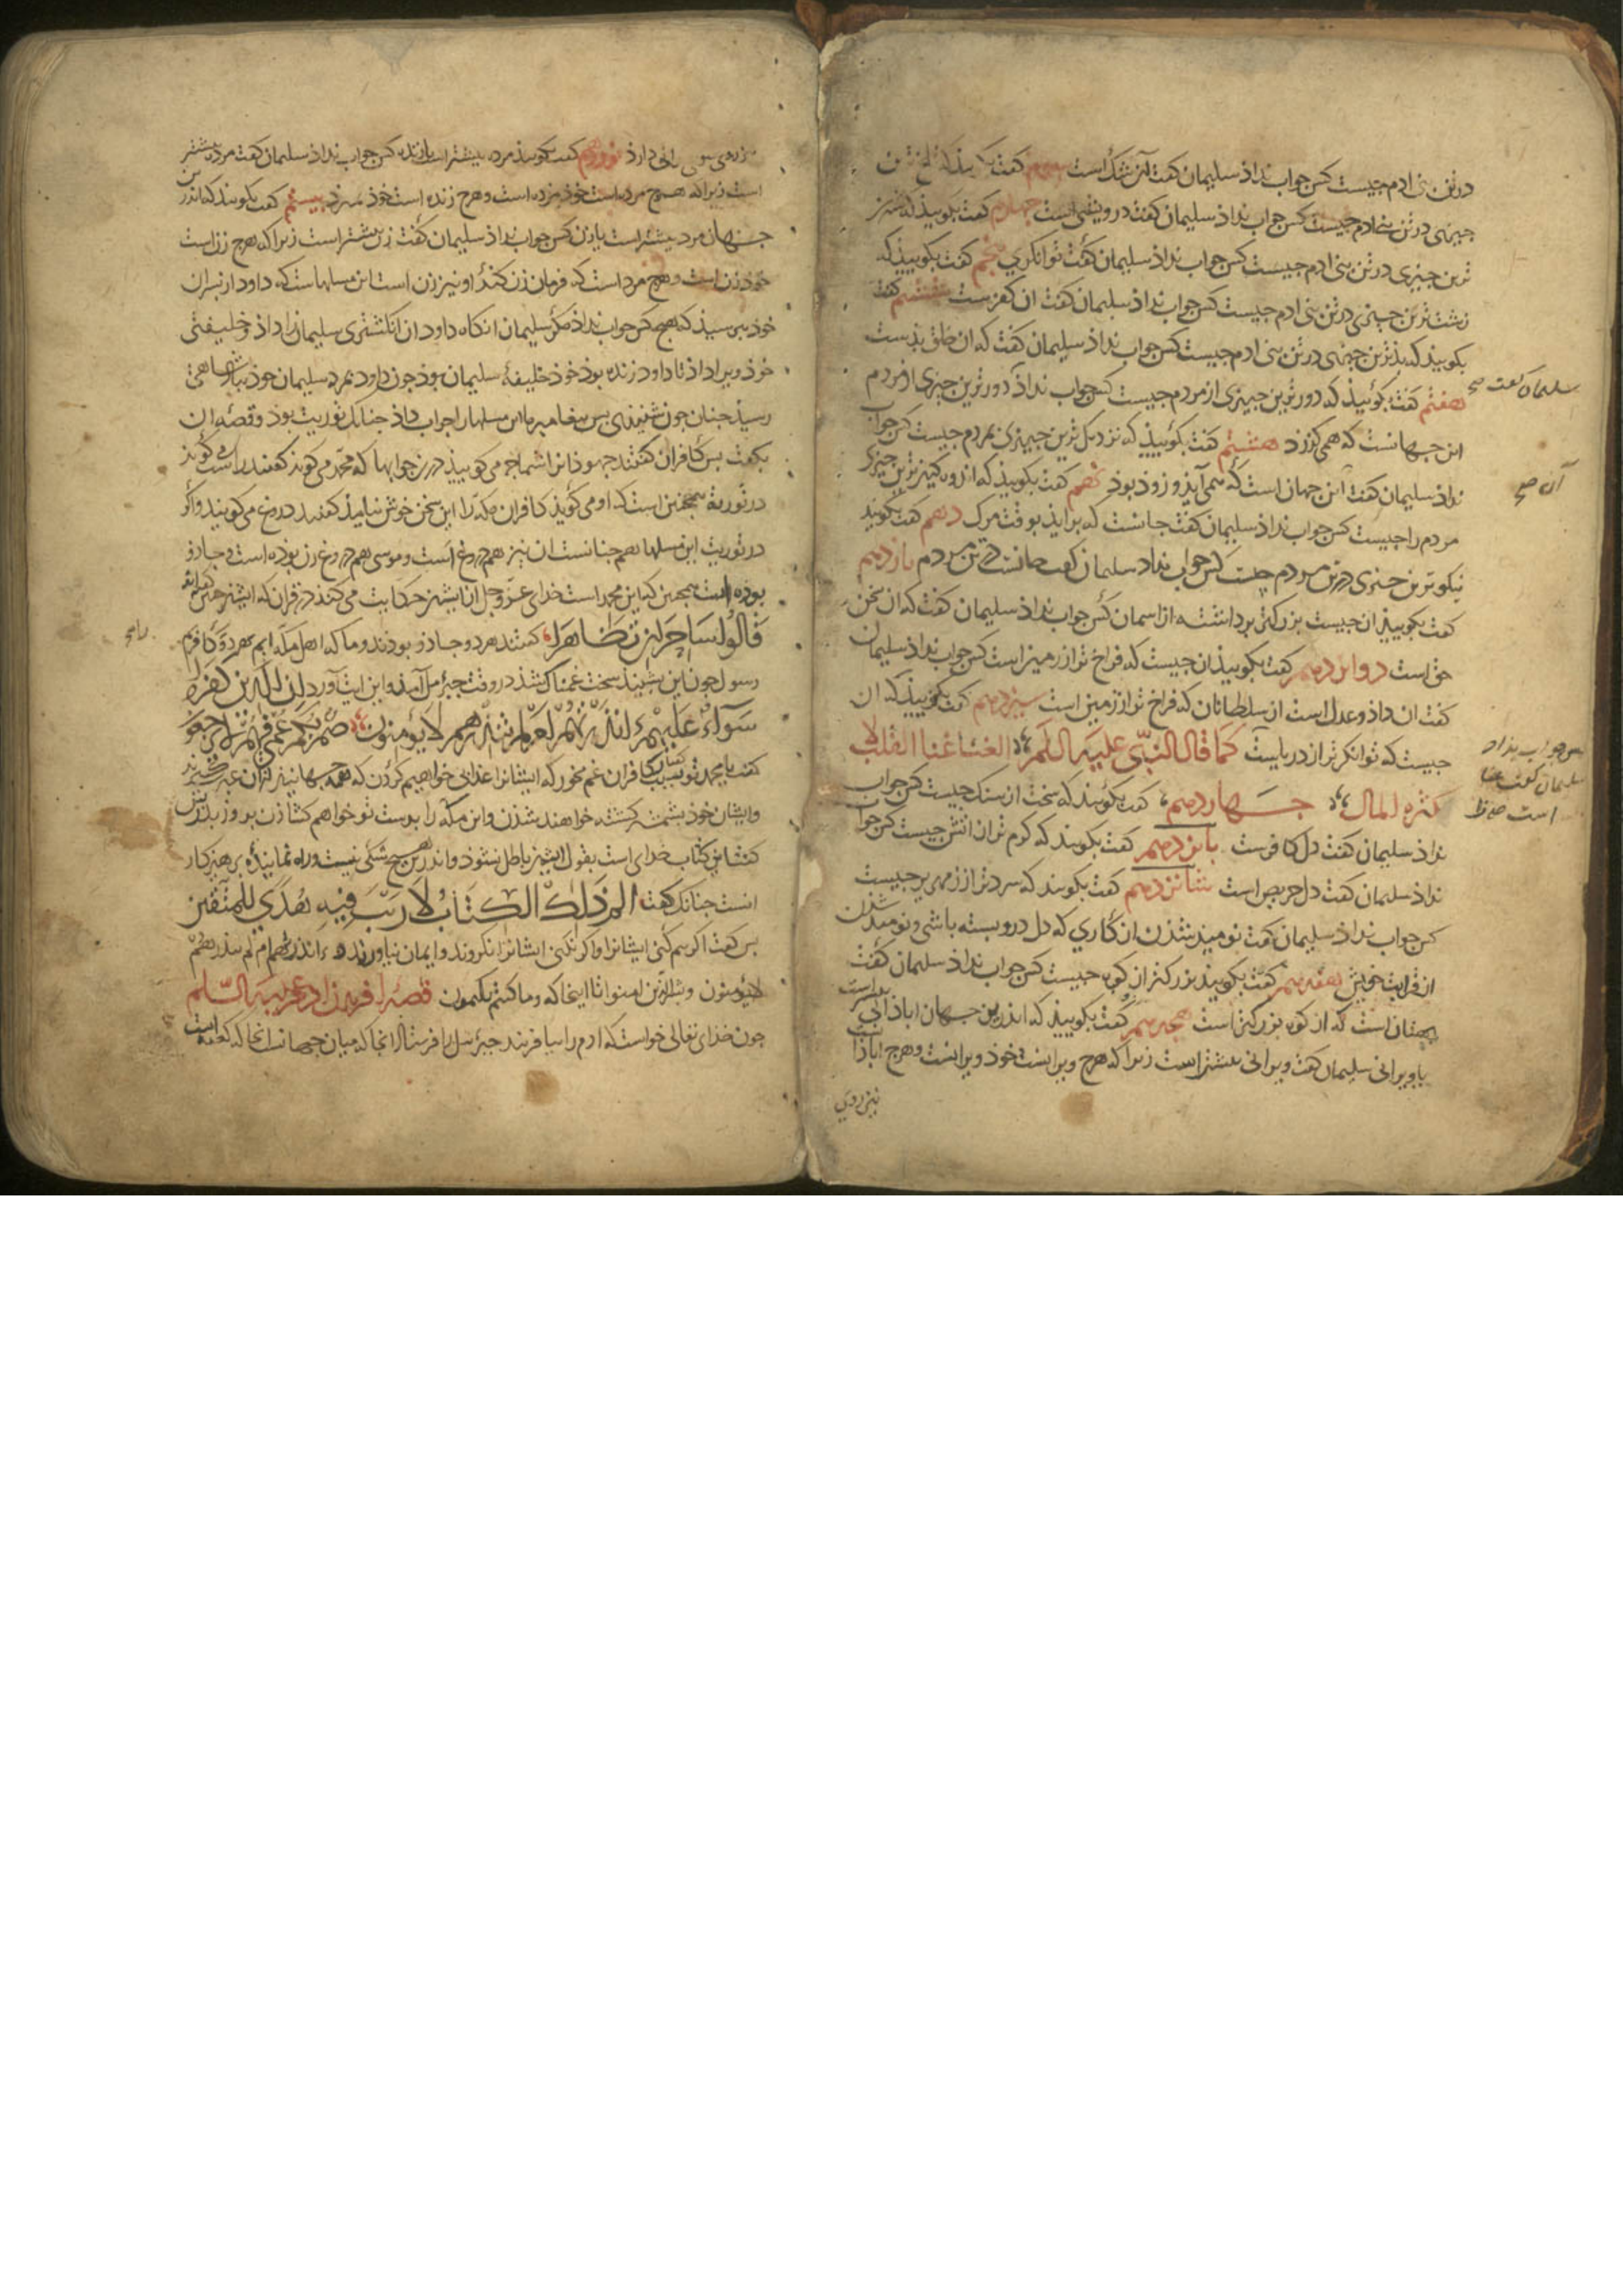 در تن بنی ادم جیست کس جواب نداذ سلیمان کفت آن شکّ است سیوم کفت
جیزی در تن بنی ادم جیست کس جواب نداذ سلیمان کفت درویشی است چهارم کفت بکوییذ که شیرین
ترین جیزی در تن بنی ادم جیست کس جواب نداذ سلیمان کفت توانکری پنجم کفت بکوییذ که
زشت ترین جیزی در تن بنی ادم جیست کس جواب نداذ سلیمان کفت ان کفرست ششم کفت
بکوییذ که بذترین جیزی در تن بنی ادم جیست کس جواب نداذ سلیمان کفت که ان خلق بذست
هفتم کفت بکوئیذ که دورترین جیزی از مردم جیست کس جواب نداذ که دورترین جیزی از مردم
سلیمان کفت صح
این جهانست که همی کزرد هشتم کفت بکوئییذ که نزدیک ترین جیزی بمردم جیست کس جواب
نداذ سلیمان کفت این جهان است که همی آیذ و زوذ بوذ نهم کفت بکوییذ که اندوهکین ترین جیزی
آن صح
مردم را جیست کس جواب نداذ سلیمان کفت جانست که برایذ بوقت مرک دهم کفت بکوییذ
نیکوترین جیزی در تن مردم جیست کس جواب نداد سلیمان کفت جانست در تن مردم یازدهم
کفت بکوییذ ان جیست بزرکتر برداشته از اسمان کس جواب نداذ سلیمان کفت که ان سخن
حق است دوازدهم کفت بکوییذ ان جیست که فراخ تر از زمین است کس جواب نداذ سلیمان
کفت ان داذ و عدل است از سلطانان که فراخ تر از زمین است سیزدهم کفت بکوییذ که ان
جیست که توانکرتر از دریاست کما قال النبّی علیه السلم الغناء غنا القلب لا
کس جواب نداد
سلیمان کفت غنا
است
کثرة المال جهاردهم کفت بکوئیذ که سخت از سنک جیست کس جواب
نداذ سلیمان کفت دل کافرست پانزدهم کفت بکوییذ که کرم تر از اتش جیست کس جواب
نداذ سلیمان کفت دل حریص است شانزدهم کفت بکوییذ که سردتر از زمهریر جیست
کس جواب نداذ سلیمان کفت نومیذ شذن از کاری که دل درو بسته باشی و نومیذ شذن
از قرابت خویش هفدهم کفت بکوییذ بزرکتر از کوه جیست کس جواب نداذ سلیمان کفت
بهتان است که از کوه بزرکتر است هجدهم کفت بکوییذ که اندرین جهان اباذانی بیشتر است
یا ویرانی سلیمان کفت ویرانی بیشتر است زیرا که هرج ویرانست خوذ ویرانست و هرج اباذانست
نیز روی
نیز روی سوی ویرانی دارذ نوزدهم کفت بکوییذ مرده بیشتر است یا زنده کس جواب نداذ سلیمان کفت مرده بیشتر
است زیرا که هرج مرده است خوذ مرده است و هرج زنده است خوذ بمیرذ بیستم کفت بکوییذ که اندرین
جهان مرد بیشتر است یا زن کس جواب نداذ سلیمان کفت زن بیشتر است زیرا که هرج زن است
خوذ زن است و هرج مرد است که فرمان زن کنذ او نیز زن است این مسلهاست که داود از بسران
خوذ ببرسیذ که هیج کس جواب نداذ مکر سلیمان انکاه داود ان انکشتری سلیمان را داذ و خلیفتی
خوذ ویرا داذ تا داود زنده بوذ خوذ خلیفهٔ سلیمان بوذ جون داود بمرد سلیمان خوذ بباذشاهی
رسیذ جنان جون شنیذی بس بیغامبر ما این مسلها را جواب داذ جنانک در توریت بوذ و قصهٔ ان
بکفت بس کافران کفتند جهوذانرا شما جه می کوییذ درین جوابها که محمّد می کویذ کفتند راست می کویذ
در توریة همجنین است که او می کویذ کافران مکه را این سخن خوش نیامذ کفتند دروغ می کویند و اکر
در توریت این مسلها هم جنانست ان نیز هم دروغ است و موسی هم دروغ زن بوذه است و جاذو
بوذه است همجنین که این محمد است خدای عزّ و جل از ایشان حکایت می کنذ در قران که ایشان
قَالُوا سَاحِرَانِ تَظَاهَرَا کفتند هر دو جاذو بودند و ما که اهل مکّه ایم بهر دو کافریم
رسول جون این بشنیذ سخت غمناک شذ در وقت جبرئیل آمذ و این ایت آورد ان الّذین کفروا
سَوَآءٌ عَلَیْهِم ءَاَنْذَرْتَهُمْ اَم لَم تُنْذِرْهُم لَا یُؤمِنُون صُمٌّ بُکْمٌ عُمْیٌ فَهُمْ لا یرجعون
کفت یا محمد تو بسبب این کافران غم مخور که ایشانرا عذاب خواهیم کردن
وایشان خوذ بشمشیر کشته خواهند شذن و این مکّه را بر دست تو خواهم کشاذن
کفت این کتاب خدای است بقول ایشان باطل نشوذ و اندرین هیج شکی نیست و راه نماینده پرهیزکار
انست جنانک کفت الم ذَلِکَ الْکِتَابُ لَا رَیْبَ فِیهِ هُدًی لِلْمُتَّقِینَ
بس کفت اکر بیم کنی ایشانرا و اکر نکنی ایشانرا نکروند و ایمان نیاورند ءانذرتهم ام لم تنذرهم
لا یؤمنون قصّهٔ آفریدن آدم علیه السّلم
جون خدای تعالی خواست که ادم را بیافریند جبرئیل را فرستاذ انجا که میان جهانست انجا که کعبه است